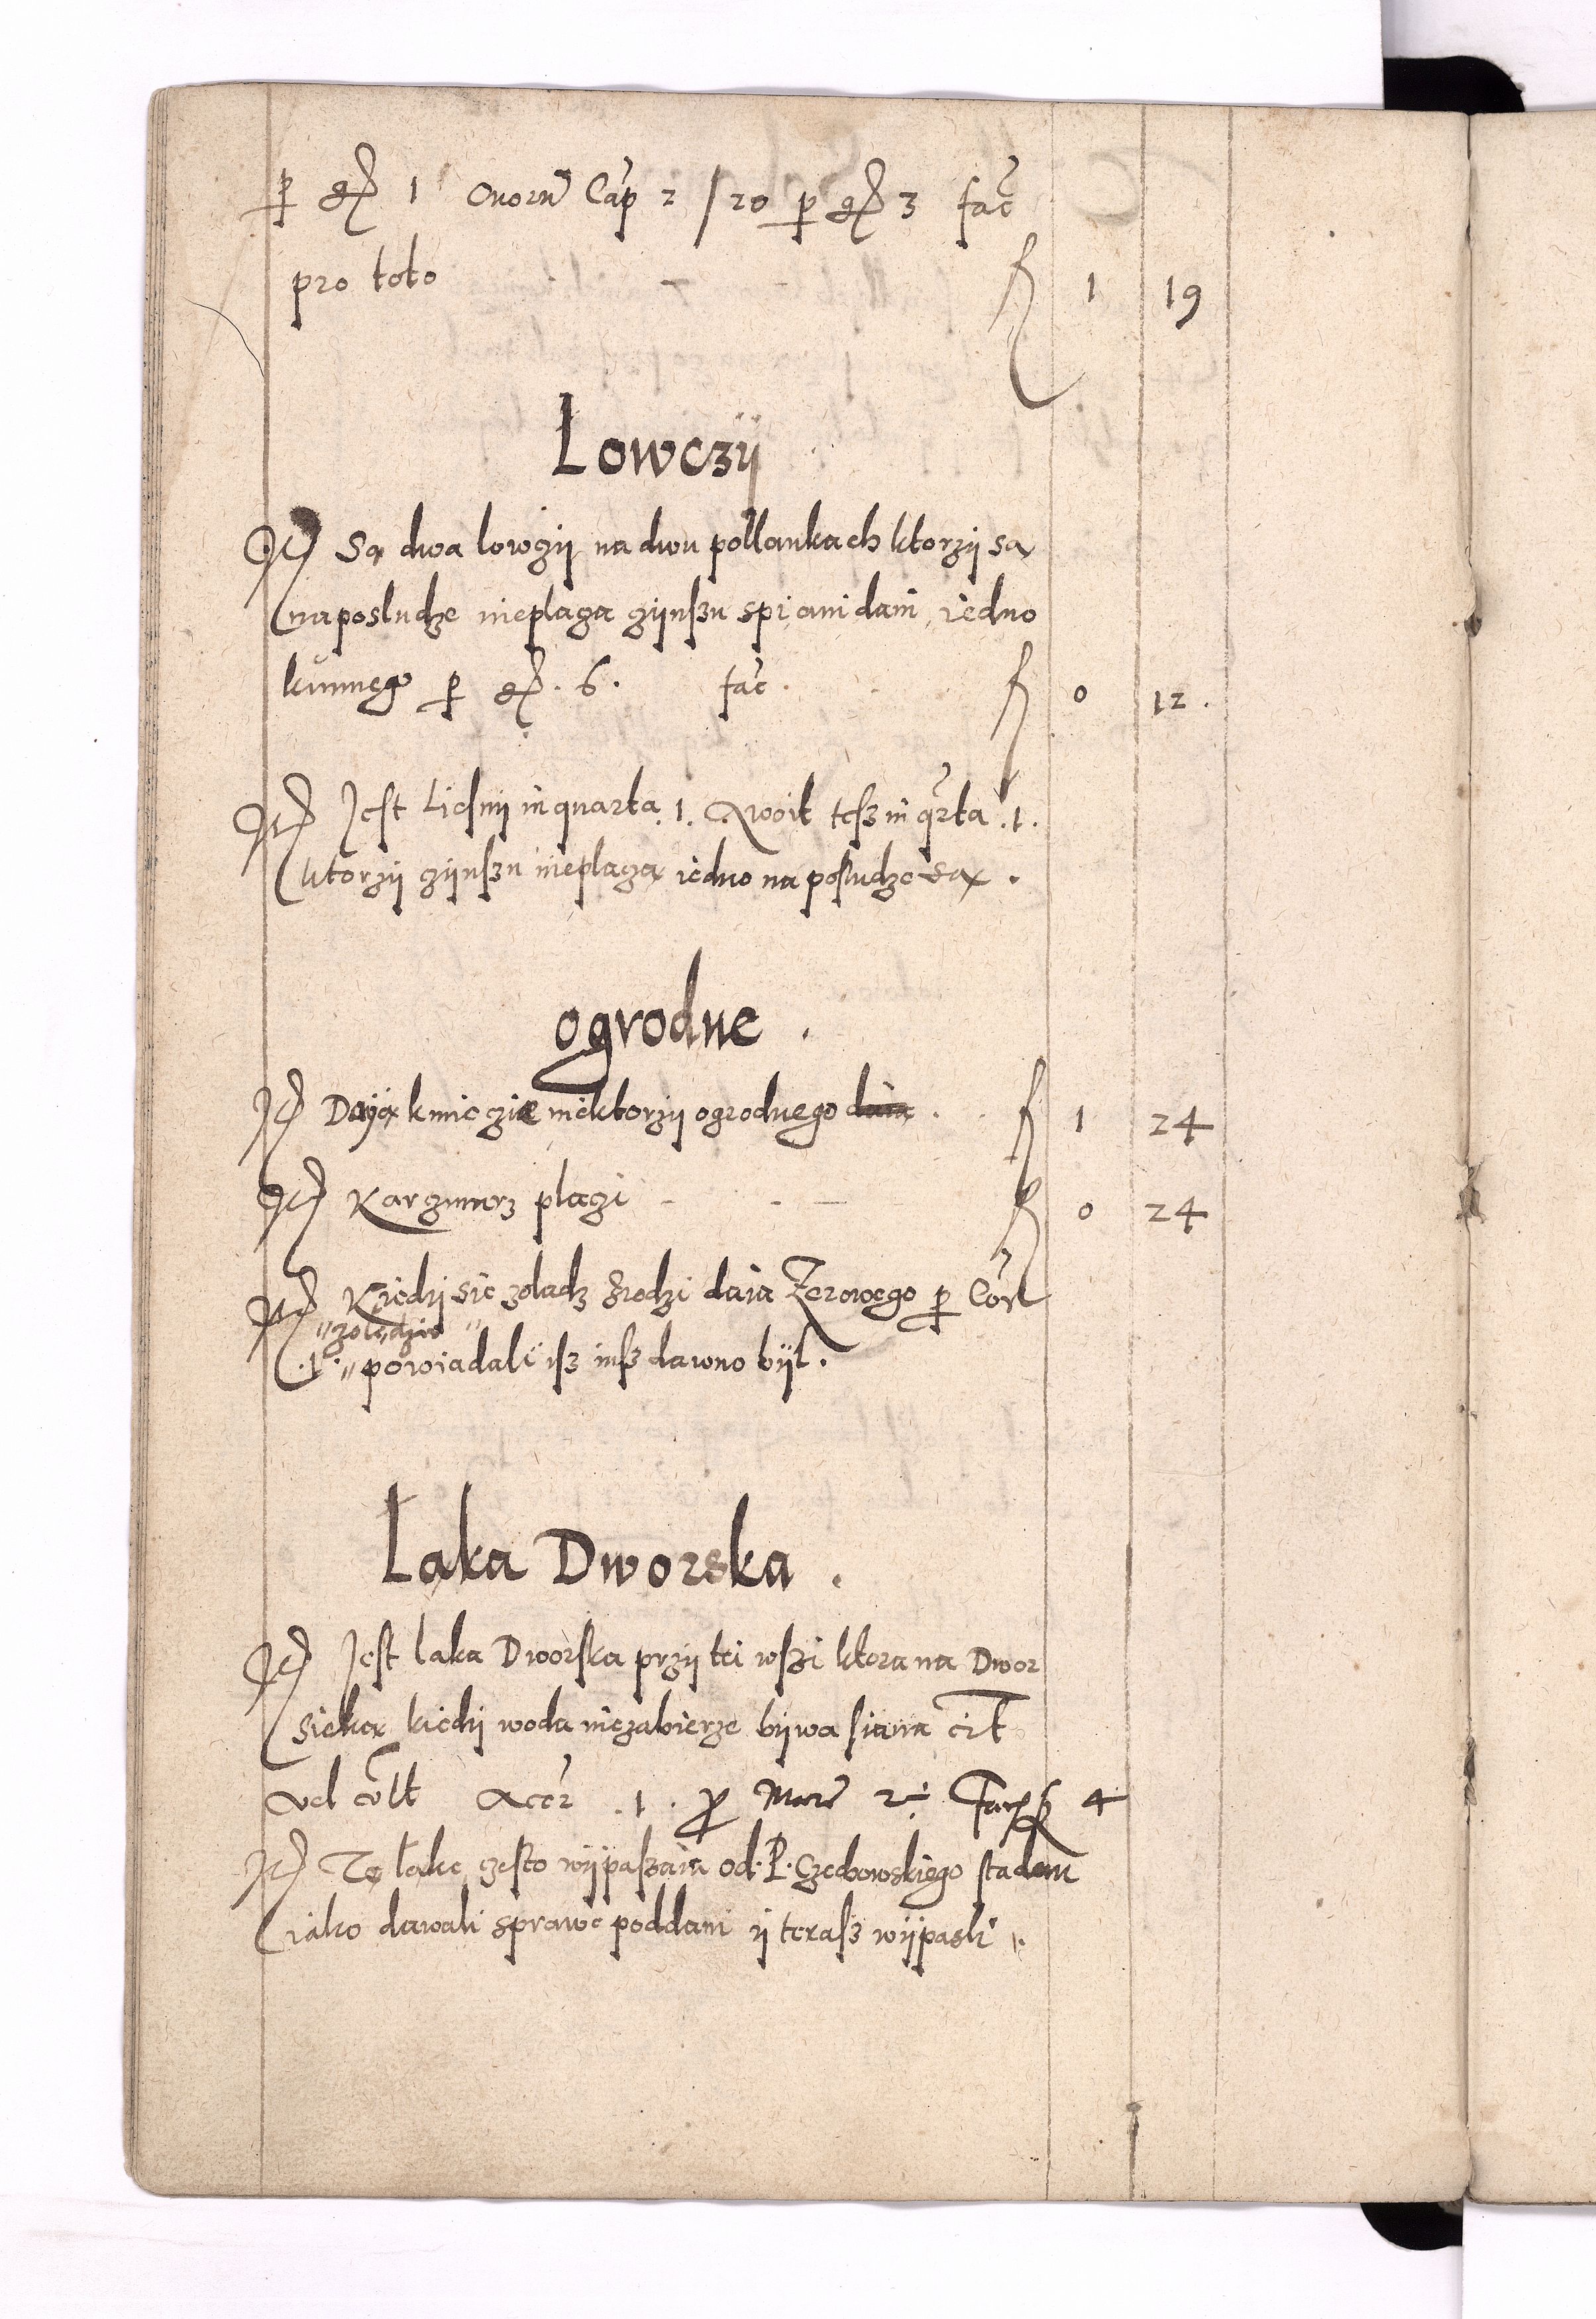 p gr 1 Ouorũ Cap 2 / 20 p gr 3 fac̃
pro toto - - fl 1 19
Lowczÿ
Jt Są dwa lowczÿ na dwu pollankach ktorzÿ są
na posludze nieplaczą czÿnszu spi ani dani, iedno
kunnego p gr . 6 . fac̃ . fl 0 12 .
Jt Jest Liesnÿ in quarta . 1 . Woit tesz in qrta . 1 .
ktorzÿ czÿnszu nieplaczą iedno na posludze są .
ogrodne .
Jt Dayą kmieczie niektorzÿ ogrodnego daia . fl 1 24
Jt Karczmarz placzi - - - fl 0 24
Jt Kiedÿ sie zoladz zrodzi daia Zerowego p Cor
" zolędzie "
. 1 . " powiadali isz insz dawno bÿl .
Laka Dworska .
Jt Jest laka Dworska przÿ tei wszi ktora na Dwor
sieką kiedÿ woda niezabierze bÿwa siana cit
vel colt Acer . 1 . p Marc 2 ÷ 4
Jt Tę łake czesto wÿpaszaia od . P . Czechowskiego stadem
iako dawali sprawe poddani ÿ terasz wÿpasli .